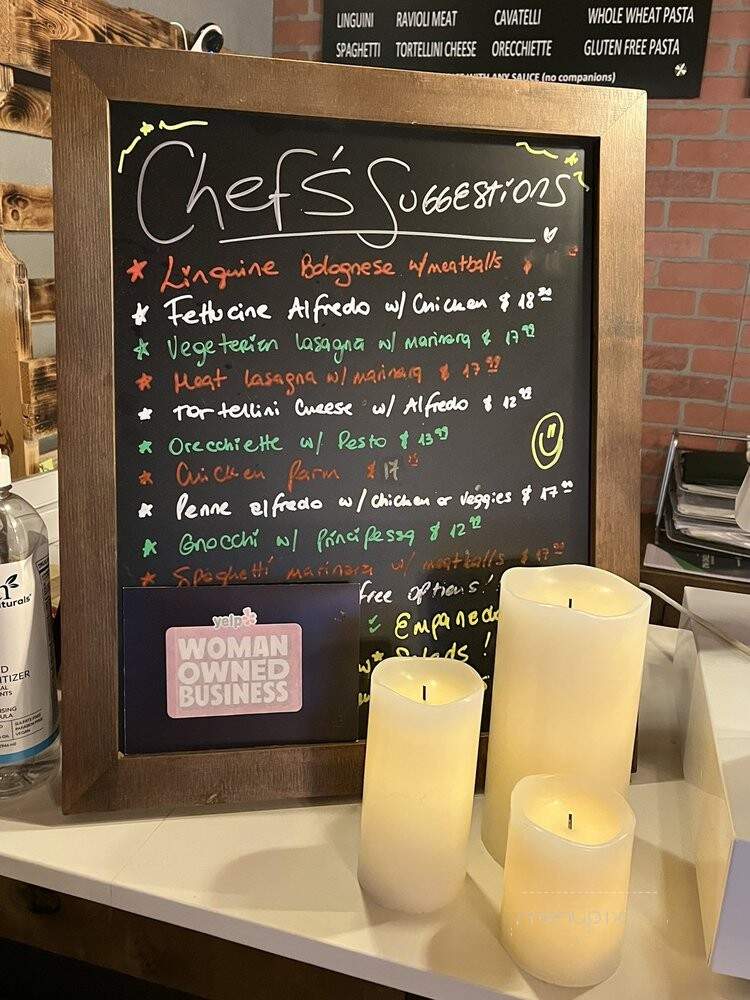 LINGUINI RAVIOLI MEAT CAVATELLI WHOLE WHEAT PASTA
SPAGHETTI TORTELLINI CHEESE ORECCHIETTE GLUTEN FREE PASTA
WITH ANY SAUCE (no companions)
Chef's Suggestions
Linguine Bolognese w/meatballs $
Fettucine Alfredo w/ Chicken $ 18
Vegeterian lasagna w/ marinara $ 17.99
Meat lasagna w/ marinara $ 17.99
Tortellini Cheese w/ Alfredo $ 12.99
Orecchiette w/ Pesto $ 13.99
Chicken Parm $ 17
Penne alfredo w/chicken or veggies $ 17.99
Gnocchi w/ Principessa $ 12.99
Spaghetti marinara w/ meatballs $ 17.99
free options!
Empanada
Salads!
yelp
WOMAN
OWNED
BUSINESS
menupix